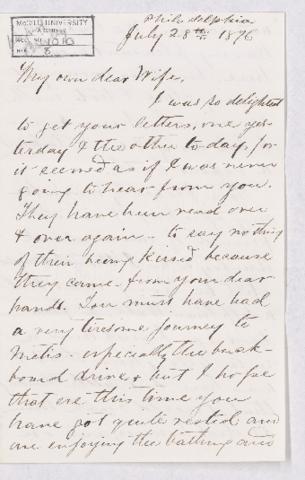 McGILL UNIVERSITY
ACC. NO. 1010
REF. 8
Philadelphia
July 28th 1876
My own dear Wife,
I was so delighted
to get your letters, one yes-
terday & the other to-day, for
it seemed as if I was never
going to hear from you.
They have been read over
& over again - to say nothing
of their being kissed because
they came from your dear
hands. You must have had
a very tiresome journey to
Metis - especially the buck-
board drive & but I hope
that ere this time you
have got quite rested and
are enjoying the bathing and